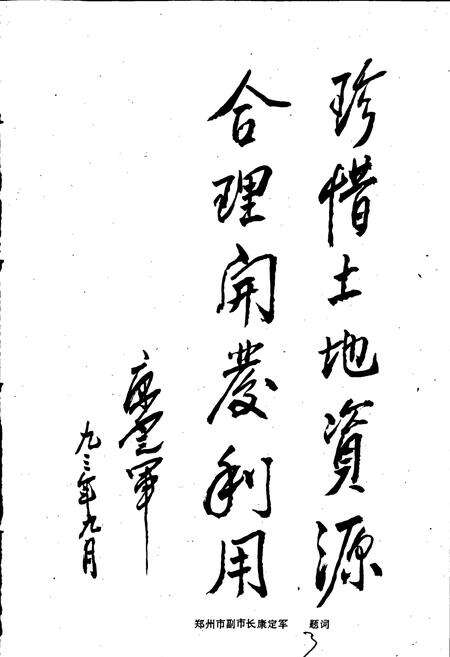 珍惜土地資源
合理開發利用
康定军
九三年九月
郑州市副市长康定军 题词
3